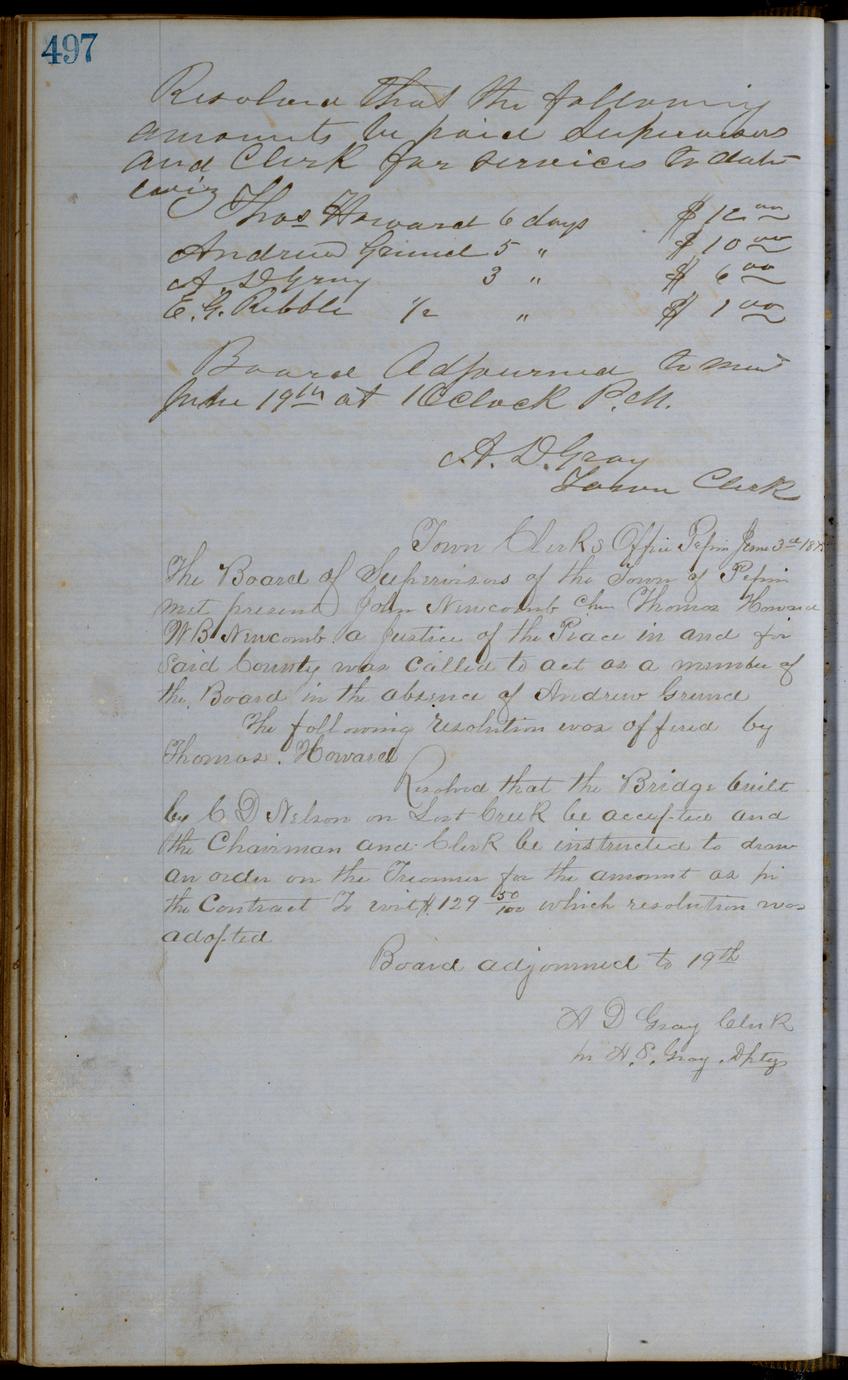 497
Resolved that the following
amounts be paid Supervisors
and Clerk for services to date
Thos Howard 6 days $12 00
Andrew Grund 5 " $10 00
A. D Gray 3 " $6 00
E. G. Pibble 1/2 " $1 00
Board Adjourned to meet
June 19th at 1 Oclock P.M.
A. D. Gray
Town Clerk
Town Clerks Office Pepin June 3rd
The Board of Supervisors of the Town of Pepin
met present John Newcomb chn Thomas Howard
W B Newcomb a Justice of the Peace in and for
Said County was called to act as a member of
the Board in the absence of Andrew Grund
The following resolution was offered by
Thomas Howard
Resolved that the Bridge built
by C D Nelson on Lost Creek be accepted and
the Chairman and Clerk be instructed to draw
an order on the Treasurer for the amount as pr
the Contract To wit $129 50/100 which resolution was
adopted
Board adjourned to 19th
A D Gray Clerk
pr H. S. Gray. Dpty